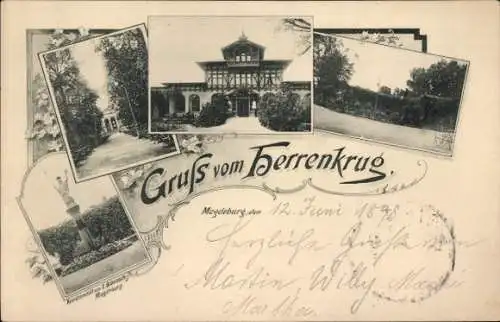 Gruss vom Herrenkrug.
Magdeburg, den 12. Juni 1898
Herzliche Grüße
Martin Willy
Martha
Magdeburg